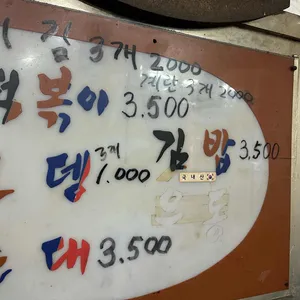 김 3개 2000
계란 3개 2000
복이 3.500
김밥 3.500
국내산
뎅 3개 1.000
대 3.500